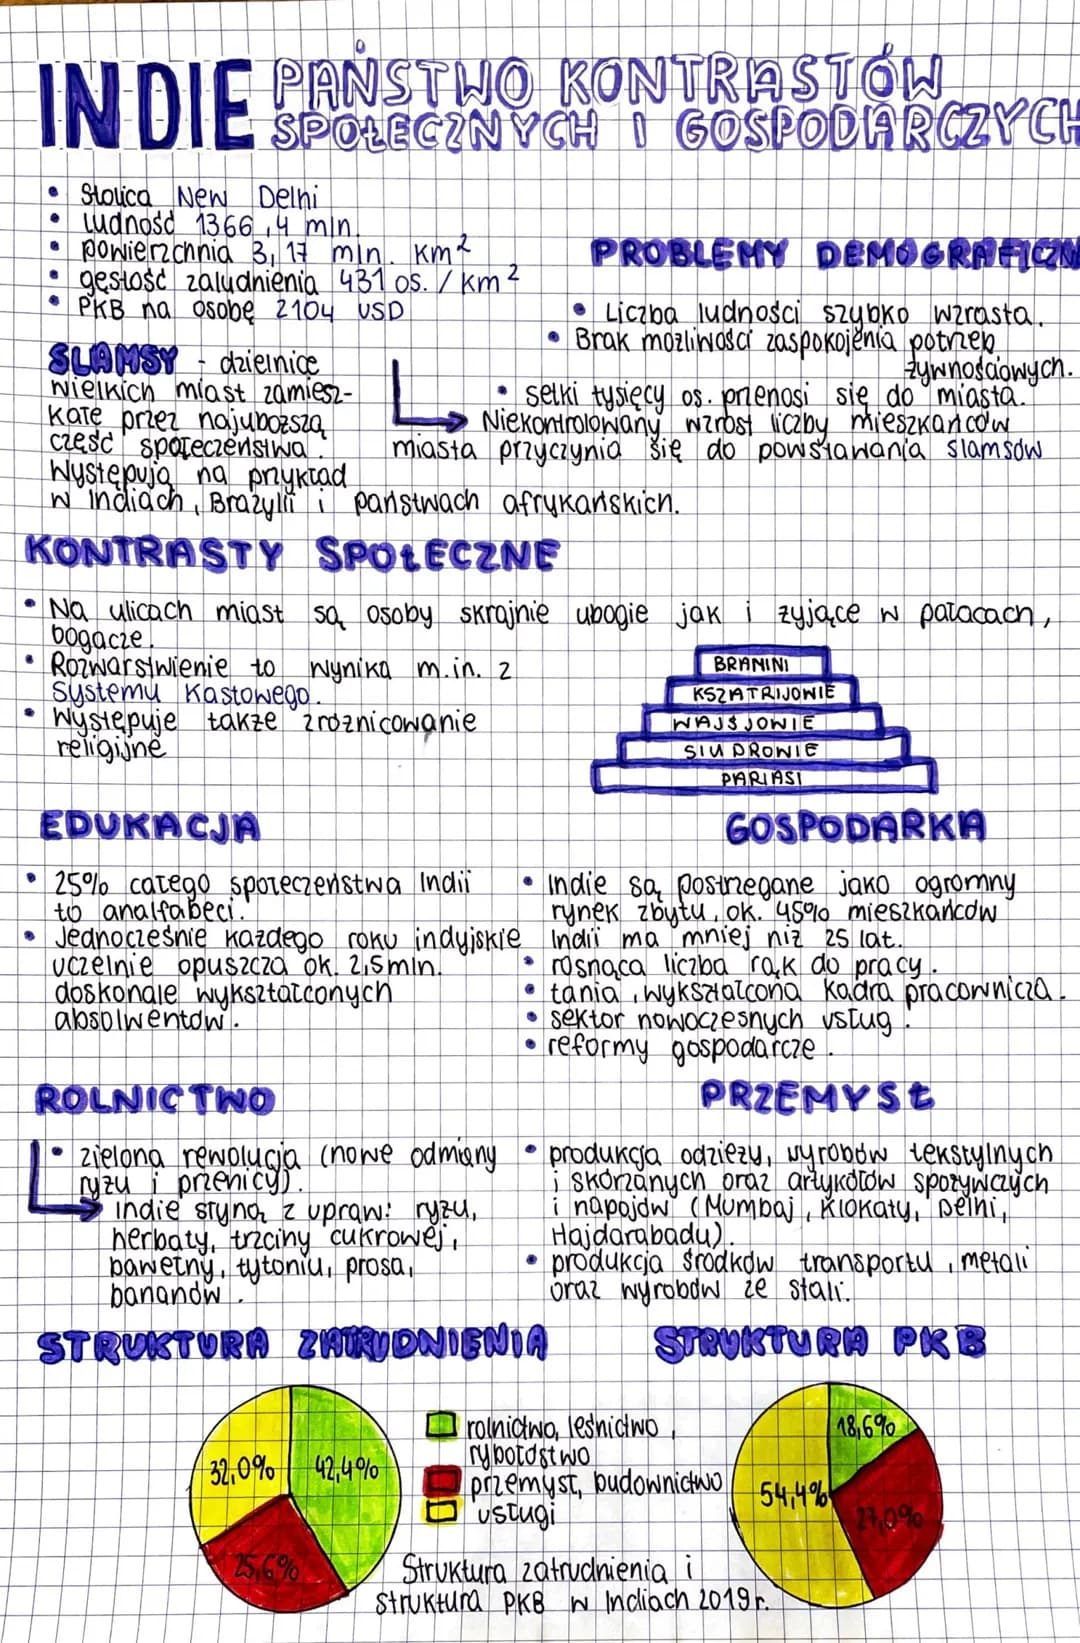 INDIE PAŃSTWO KONTRASTÓW
SPOŁECZNYCH I GOSPODARCZYCH
• Stolica New Delhi
• ludność 1366,4 mln.
• powierzchnia 3,17 mln. km²
• gęstość zaludnienia 431 os./km²
• PKB na osobę 2104 USD
PROBLEMY DEMOGRAFICZN
• Liczba ludności szybko wzrasta.
• Brak możliwości zaspokojenia potrzeb
żywnościowych.
• setki tysięcy os. przenosi się do miasta.
Niekontrolowany wzrost liczby mieszkańców
miasta przyczynia się do powstawania slamsów
SLAMSY - dzielnice
wielkich miast zamiesz-
kałe przez najuboższą
część społeczeństwa.
Występują na przykład
w Indiach, Brazylii i państwach afrykańskich.
KONTRASTY SPOŁECZNE
• Na ulicach miast są osoby skrajnie ubogie jak i żyjące w pałacach,
bogacze.
• Rozwarstwienie to wynika m.in. z
systemu kastowego.
• Występuje także zróżnicowanie
religijne
BRAMINI
KSZATRIJOWIE
WAJŚJOWIE
SIUDROWIE
PARIASI
EDUKACJA
• 25% całego społeczeństwa Indii
to analfabeci.
• Jednocześnie każdego roku indyjskie
uczelnie opuszcza ok. 2,5mln.
doskonale wykształconych
absolwentów.
GOSPODARKA
• Indie są postrzegane jako ogromny
rynek zbytu, ok. 45% mieszkańców
Indii ma mniej niż 25 lat.
• rosnąca liczba rąk do pracy.
• tania, wykształcona kadra pracownicza.
• sektor nowoczesnych usług.
• reformy gospodarcze.
ROLNICTWO
• zielona rewolucja (nowe odmiany
ryżu i przenicy).
indie słyną z upraw: ryżu,
herbaty, trzciny cukrowej,
bawełny, tytoniu, prosa,
bananów.
PRZEMYSŁ
• produkcja odzieży, wyrobów tekstylnych
i skórzanych oraz artykółów spożywczych
i napojów (Mumbaj, Klokaty, Delhi,
Hajdarabadu).
• produkcja środków transportu, metali
oraz wyrobów ze stali.
STRUKTURA ZATRUDNIENIA
32,0%
42,4%
25,6%
rolnictwo, leśnictwo,
rybołóstwo
przemysł, budownictwo
usługi
STRUKTURA PKB
18,6%
54,4%
27,0%
Struktura zatrudnienia i
struktura PKB w Indiach 2019r.